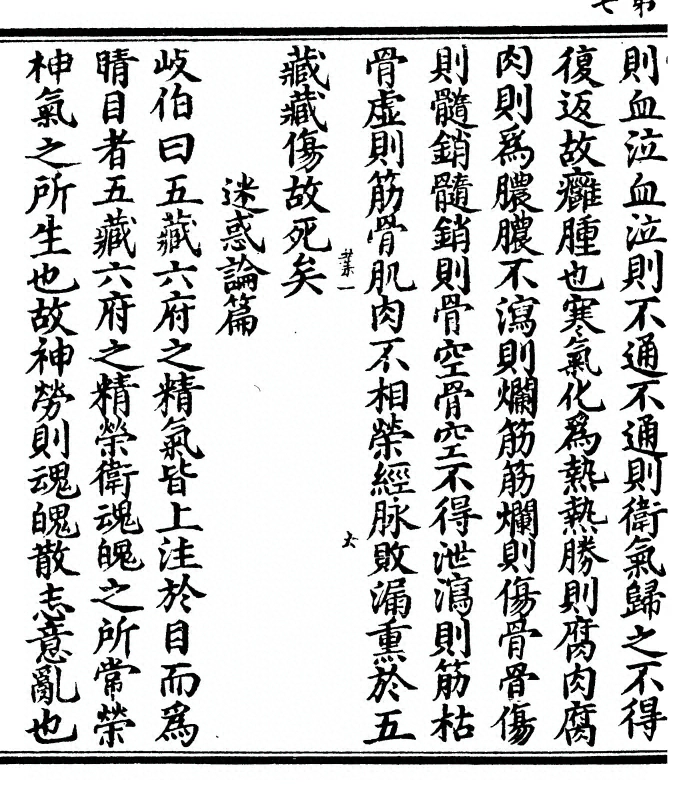 則血泣血泣則不通不通則衛氣歸之不得
復返故癰腫也寒氣化爲熱熱勝則腐肉腐
肉則爲膿膿不瀉則爛筋筋爛則傷骨骨傷
則髓銷髓銷則骨空骨空不得泄瀉則筋枯
骨虛則筋骨肌肉不相榮經脉敗漏熏於五
藏藏傷故死矣
迷惑論篇
岐伯曰五藏六府之精氣皆上注於目而爲
睛目者五藏六府之精榮衛魂魄之所常榮
神氣之所生也故神勞則魂魄散志意亂也